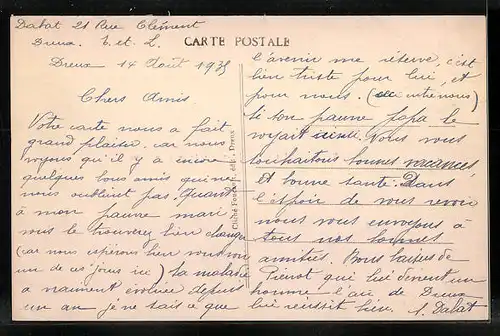 Dabat 21 Rue Clément
Dreux. E. et. L.
CARTE POSTALE
Dreux 14 Août 1935
Chers Amis
Votre carte nous a fait
grand plaisir. car nous
voyons qu'il y a encore
quelques bons amis qui ne
nous oublient pas. Quant
à mon pauvre mari
vous le trouverez bien changé
(car nous espérons bien vous voir
un de ces jours ici) la maladie
a vraiment évoluée depuis
un an je ne sais ce que
Cliché Foucault, édit., Dreux
l'avenir me réserve, c'est
bien triste pour lui, et
pour nous. (entre nous)
Si son pauvre papa le
voyait ainsi. Nous vous
souhaitons bonnes vacances,
et bonne santé. Dans
l'espoir de vous revoir
nous vous envoyons à
tous nos bonnes
amitiés. Bons baisers de
Pierrot qui lui devient un
homme l'air de Dreux
lui réussit bien. Dabat